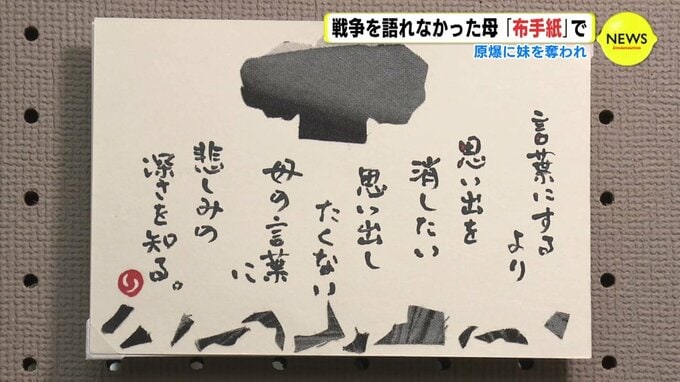 戦争を語れなかった母「布手紙」で
原爆に妹を奪われ
NEWS
言葉にする
より
思い出を
消したい
思い出し
たくない
母の言葉
に
悲しみの
深さを知る。